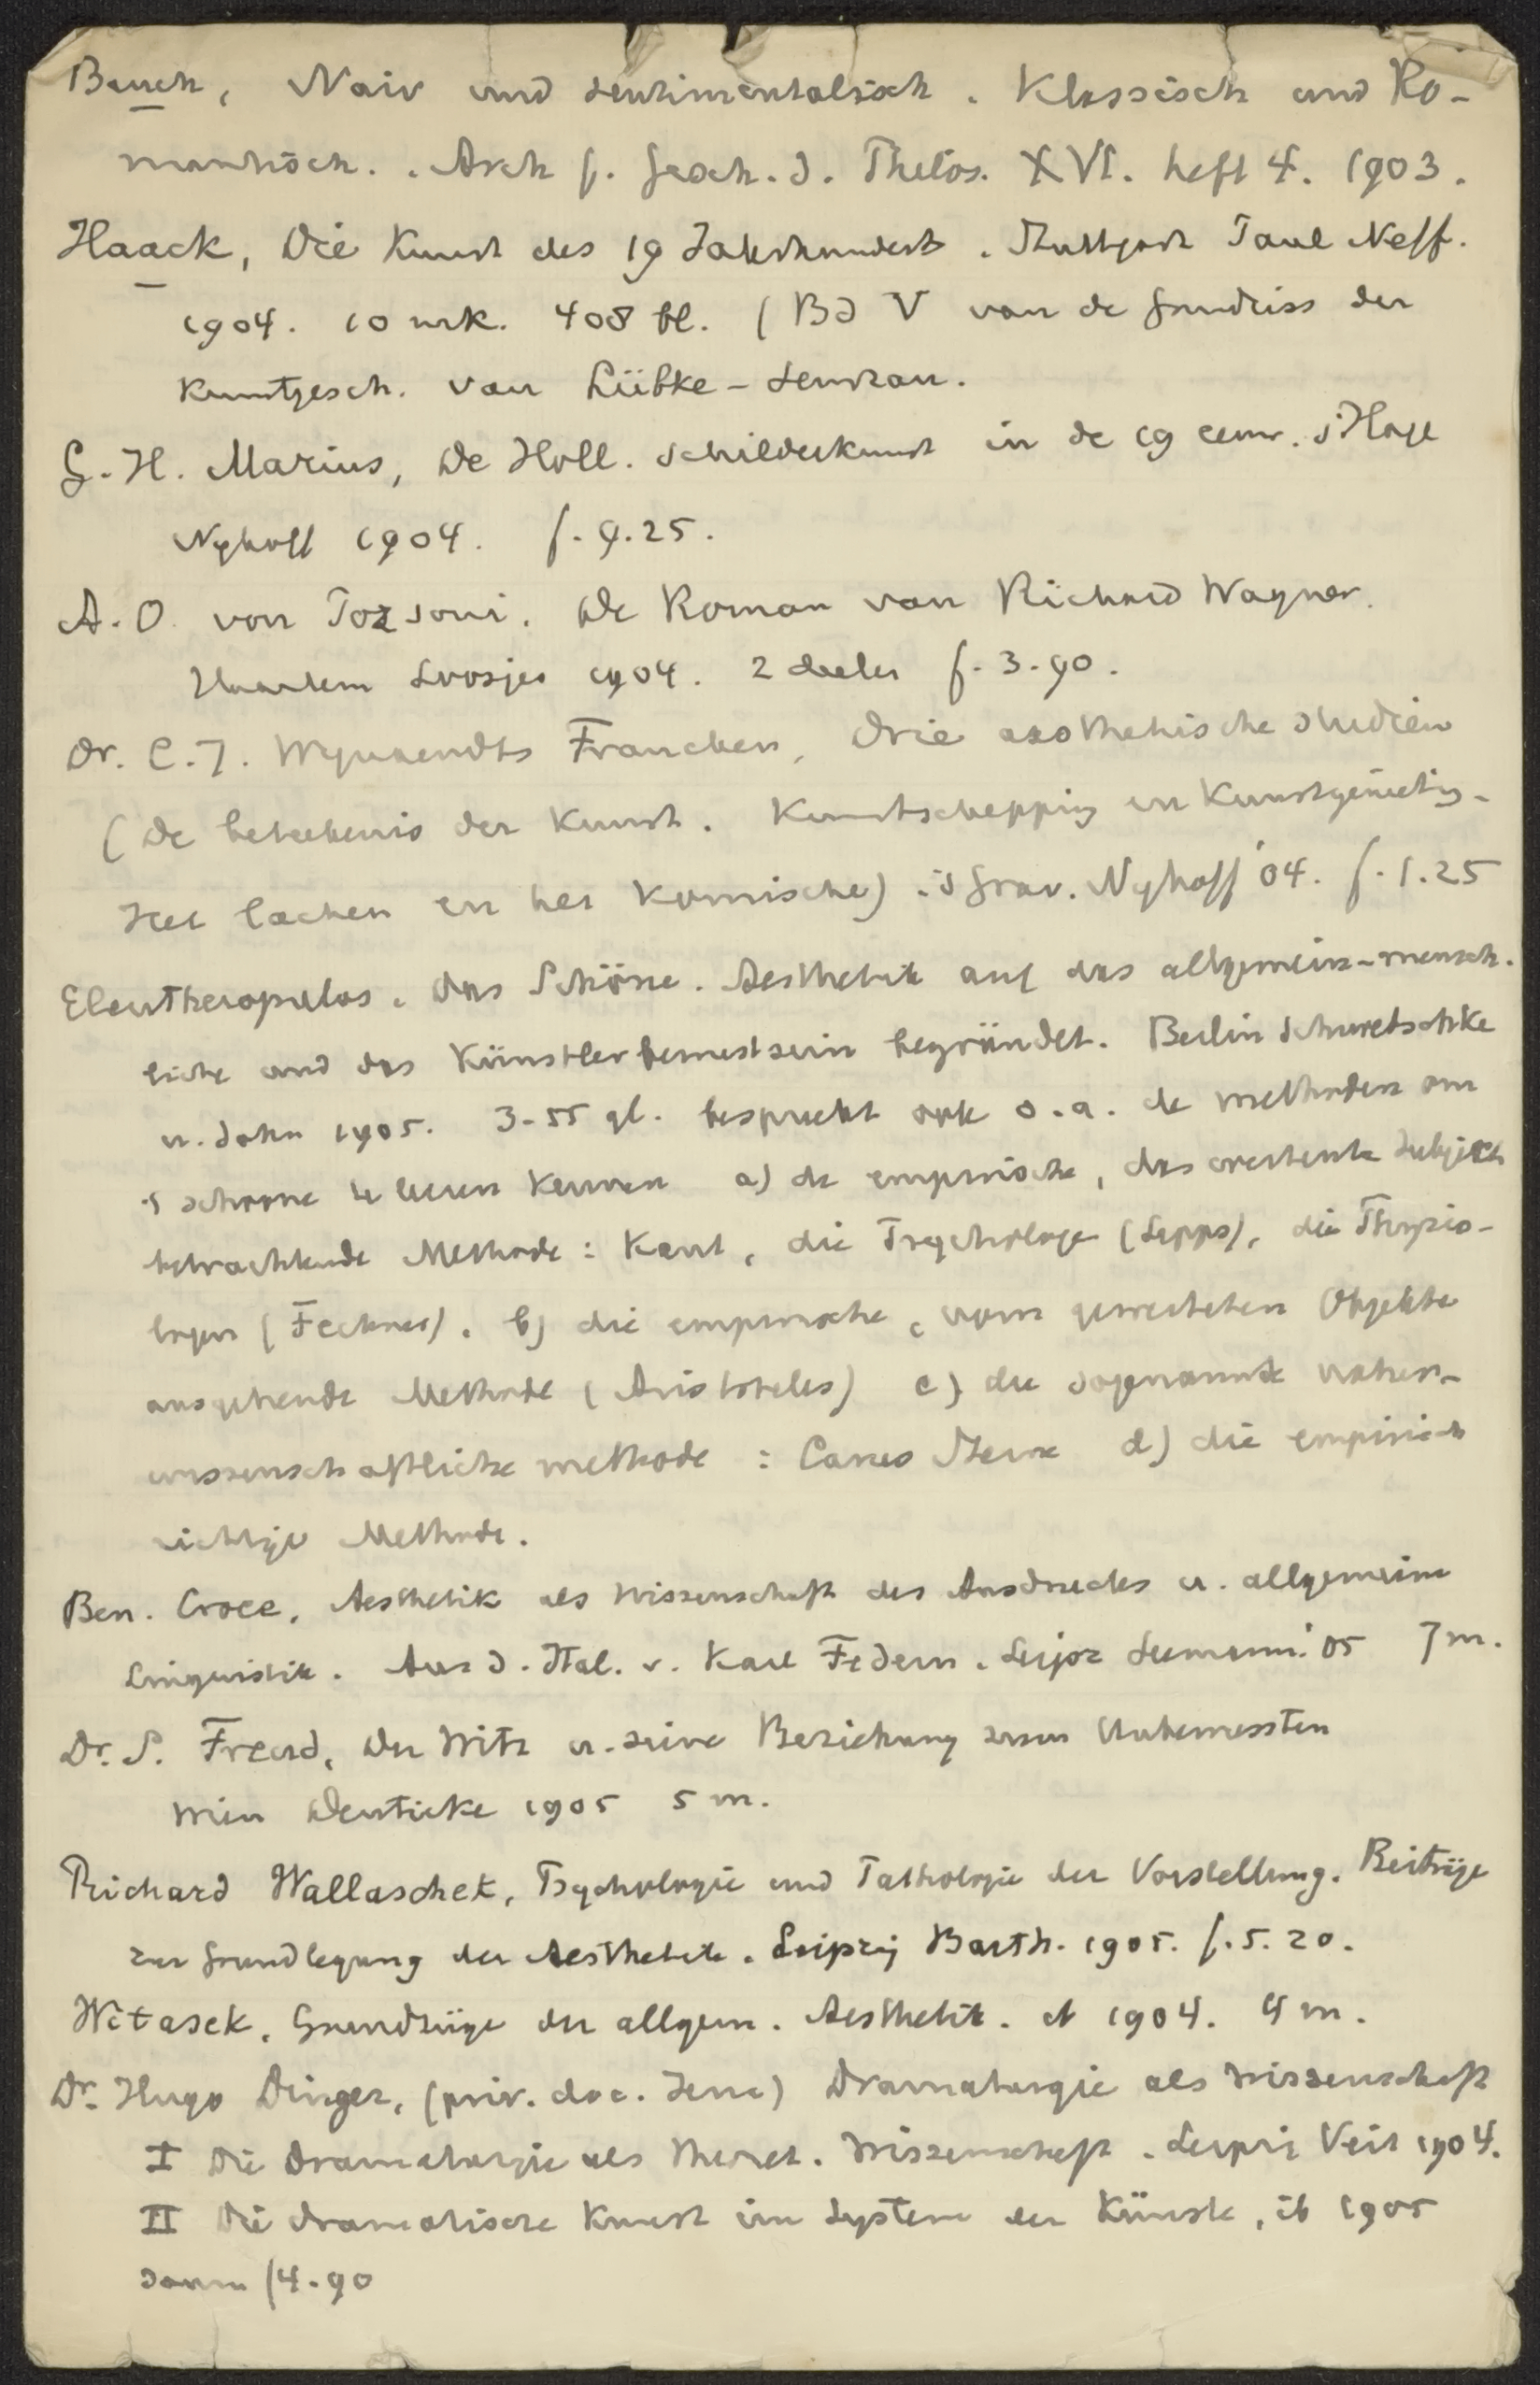 Bauch, Naiv und sentimentalisch. Klassisch und Ro-
mantisch. Arch f. Gesch. d. Philos. XVI. heft 4. 1903.
Haack, Die Kunst des 19 Jahrhunderts. Stuttgart Paul Neff.
1904. 10 mrk. 408 bl. (Bd V van de Grundriss der
Kunstgesch. van Lübke-Semrau.
G.H. Marius, De Holl. schilderkunst in de 19 eeuw. s'Hage
Nyhoff 1904. f. 9.25.
A.O. von Pozsony. De Roman van Richard Wagner.
Haarlem Loosjes 1904. 2 deelen f. 3.90.
Dr. C.J. Wynaendts Francken, Drie aesthetische studiën
(De beteekenis der kunst. Kunstschepping en Kunstgenieting.
Het lachen en het komische) 's Grav. Nyhoff '04. f. 1.25
Eleutheropulos. Das Schöne. Aesthetik auf das allgemein-mensch-
liche und das Künstlerbewustsein begründet. Berlin Schwetschke
u. Sohn 1905. 3.55 gl. bespreekt ook o.a. de methoden om
't schoone te leeren kennen a) de empirische, das wertende Subject
betrachtende Methode: Kant, die Psychologie (Lipps), die Physio-
logen (Fechner). b) die empirische, vom gewerteten Objekte
ausgehende Methode (Aristoteles) c) die sogenannte natur-
wissenschaftliche methode: Carus Sterne d) die empirisch
richtige Methode.
Ben. Croce, Aesthetik als Wissenschaft des Ausdruckes u. allgemeine
Linguistik. Aus d. Ital. v. Karl Federn. Leipz Seemann '05 7 m.
Dr. S. Freud, Der Witz u. seine Beziehung zum Unbewussten
Wien Deuticke 1905 5 m.
Richard Wallaschek, Psychologie und Pathologie der Vorstellung. Beiträge
zur Grundlegung der Aesthetik. Leipzig Barth. 1905. f. 5.20.
Witasek, Grundzüge der allgem. Aesthetik. ib 1904. 4 m.
Dr. Hugo Dinger, (priv. doc. Jena) Dramaturgie als Wissenschaft
I Die Dramaturgie als theoret. Wissenschaft. Leipzig Veit 1904.
II Die dramatische Kunst im System der Künste, ib 1905
samen f 4.90